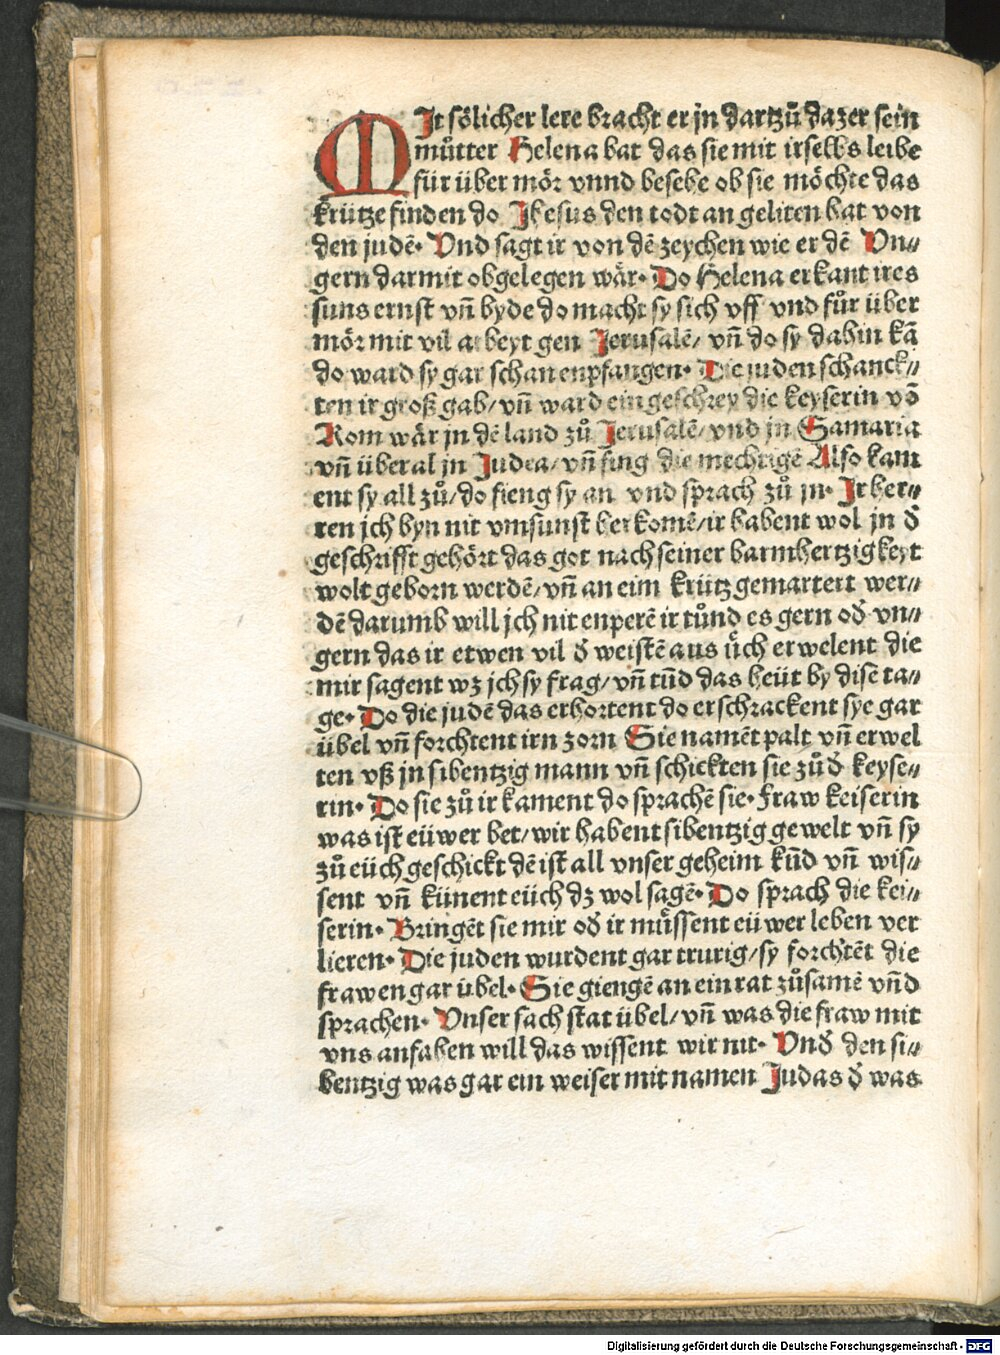 MJt sölicher lere bracht er jn dartzů da zer sein
můtter Helena bat das sie mit irselbs leibe
für über mör vnnd besehe ob sie möchte das
krütze finden do Jhesus den todt an geliten hat von
den judē. Vnd sagt ir von dē zeychen wie er dē Vn⸗
gern darmit obgelegen wär. Do Helena erkant ires
suns ernst vn̄ byde do macht sy sich vff vnd fůr über
mör mit vil arbeyt gen Jerusalē/ vn̄ do sy dahin kā
do ward sy gar schan enpfangen. Die juden schanck⸗
ten ir groß gab/ vn̄ ward ein geschrey die keyserin vō
Rom wär jn dē land zů Jerusalē/ vnd jn Samaria
vn̄ überal jn Judea/ vn̄ fing die mechtigē Also kam
ent sy all zů/ do fieng sy an vnd sprach zů jn. Jr her⸗
ren jch byn nit vmsunst her komē/ ir habent wol jn d̄
geschrifft gehört das got nach seiner barmhertzigkeyt
wolt geborn werdē/ vn̄ an eim krütz gemartert wer⸗
dē darumb will jch nit enperē ir tůnd es gern od̄ vn⸗
gern das ir etwen vil d̄ weistē aus üch erwelent die
mir sagent wz jch sy frag/ vn̄ tūd das heüt by disē ta⸗
ge. Do die judē das erhortent do erschrackent sye gar
übel vn̄ forchtent irn zorn Sie namēt palt vn̄ erwel
ten vß jn sibentzig mann vn̄ schickten sie zů d̄ keyse⸗
rin. Do sie zů ir kament do sprachē sie. Fraw keiserin
was ist eüwer bet/ wir habent sibentzig gewelt vn̄ sy
zů eüch geschickt dē ist all vnser geheim kūd vn̄ wis⸗
sent vn̄ künent eüch dz wol sagē. Do sprach die kei⸗
serin. Bringēt sie mir od̄ ir müssent eüwer leben ver
lieren. Die juden wurdent gar trurig/ sy forchtēt die
frawen gar übel. Sie giengē an ein rat zůsamē vn̄d
sprachen. Vnser sach stat übel/ vn̄ was die fraw mit
vns anfahen will das wissent wir nit. Vnd̄ den si⸗
bentzig was gar ein weiser mit namen Judas d̄ was
Digitalisierung gefördert durch die Deutsche Forschungsgemeinschaft - DFG